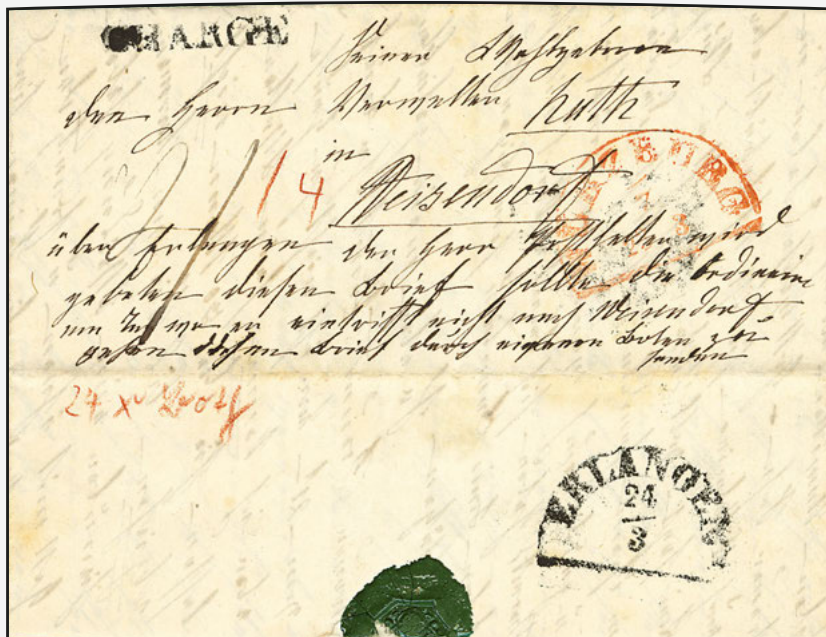 CHARGÉ
Seiner Wohlgeboren
den Herrn Verwalter Huth
in
14
Weisendorf
WÜRZBURG
3
über Erlangen der Herr Posthalter wird
gebeten diesen Brief sollte die Ordinaire
am Tag wo er eintrifft nicht nach Weisendorf
gehen diesen Brief durch eigenen Boten zu
senden
24 Xr
ERLANGEN
24
3